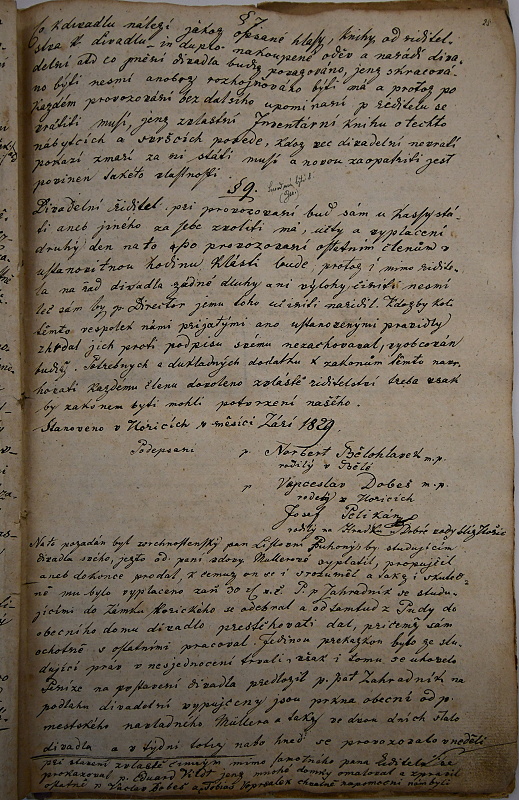 § 7.
Co k divadlu náleží jakož opsané hlasy, knihy, od ředitel-
stva k divadlu in duplo nakoupené oděv a nářadí diva-
delní atd co jmění divadla budiž považováno, jenž zkracová-
no býti nesmí anobrž rozhojňováno býti má a protož po
každém provozování bez dalšího upomínání p ředitelu se
vrátiti musí, jenž zvláštní Inventární knihu o těchto
nábytcích a svršcích povede, kdož věc divadelní nevrátí
pokazí zmaří za ni státi musí a novou zaopatřiti jest
povinen takéto vlastnosti.
§ 9.
Divadelní ředitel při provozování buď sám u kassy stá-
ti aneb jiného za sebe zvoliti má, účty a vyplacení
druhý den na to po provozování ostatním členům v
ustanovitnou hodinu klásti bude, protož i mimo ředite-
la na řád divadla žádné dluhy ani výlohy činiti nesmí
leč sám by p Director jemu toho učiniti nařídil. Kdožby koli
těmto respolek námi přijatými ano ustanovenými pravidly
zhrdal jich proti podpisu svému nezachovával, vyobcován
budiž. Potřebných a důkladných dodatků k zákonům těmto navr-
hovati každému členu dovoleno zvláště ředitelství třeba však
by zákonem býti mohli potvrzení našeho.
Stanoveno v Hořicích v měsíci Září 1829.
Podepsaní p. Norbert Bělohlavek m.p.
rodilý v Bělé
p Vaceslav Dobeš m.p.
rodilý z Hořicích
Josef Pelikán
rodilý na Hrádku u Dobré vody blíž Hořic
Na to požádán byl vrchnostenský pan Listovní Puhonýs by studujícím
divadlo svého, jezto od paní vdovy Mullerové vyplatil, propůjčil
aneb dokonce prodal, k čemuž on se i srozuměl a taky i skuteč-
ně mu bylo vyplaceno zaň 30 zl v.č. P. p Zahradník se studu-
jícími do zámku Hořického se odebral a odsamtud z Půdy do
obecního domu divadlo přestěhovati dal, přičemž sám
ochotně s ostatními pracoval. Jedinou překážkou bylo že stu-
dující práv v nesjednocení trvali, však i tomu se uhovělo
Peníze na postavení divadla předložil p. pát. Zahradník na
podlahu divadelní vypůjčeny jsou prkna obecné od p.
městského navladného. Müllera a taky ve dvou dních stálo
divadlo a v týdni totiž nato hned se provozovalo v neděli
při stavení zvláště činným mimo samotného pana ředitele se
prokazoval p. Eduard Vildt jenž mnohé domky omaloval a spravil
ostatně p Václav Dobeš a Tobiáš Vopršalek chvalně napomocni nám byli